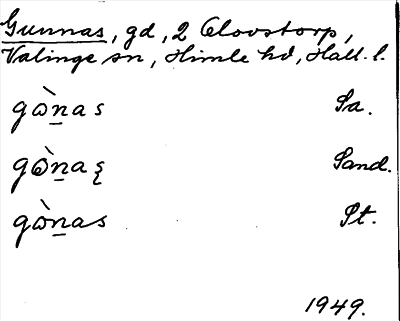 Gunnas, gd, 2 Clovstorp,
Valinge sn, Himle hd, Hall. l.
gὼn̲as Sa.
gὼn̲aꞩ Sand.
gὼn̲as St.
1949.